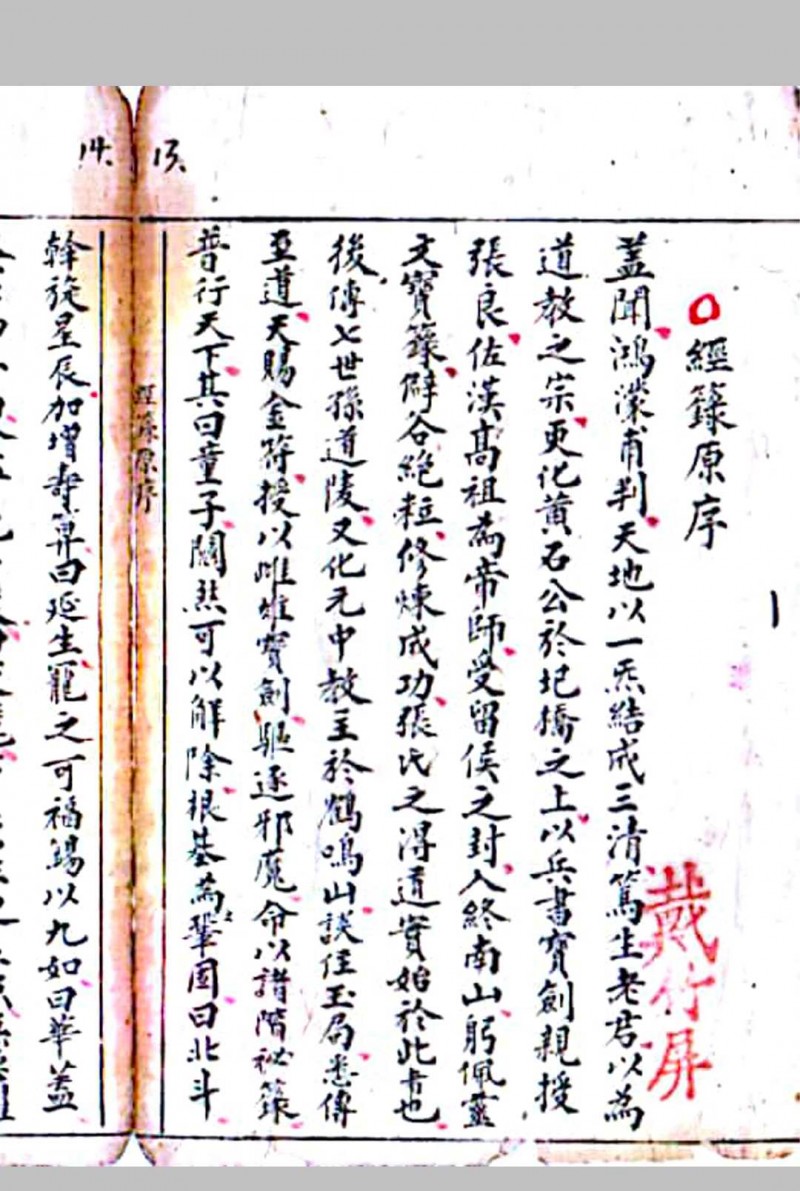 13.
經籙原序
蓋聞鴻濛甫判天地以一炁結成三清篤生老君以為
道教之宗更化黄石公於圯橋之上以兵書寶劍親授
張良佐漢高祖為帝師受留侯之封入終南山躬佩靈
文寶籙辟谷絶粒修煉成功張氏之得道實始於此者也
後傳七世孫道陵又化元中教主於鶴鳴山談住玉局悉傳
至道天賜金符授以雌雄寶劍驅逐邪魔命以諸階祕籙
普行天下其曰童子關煞可以解除根基為鞏固曰北斗
戴竹屏
經籙原序
14.
斡旋星辰加增壽算曰延生寵之可福錫以九如曰華蓋